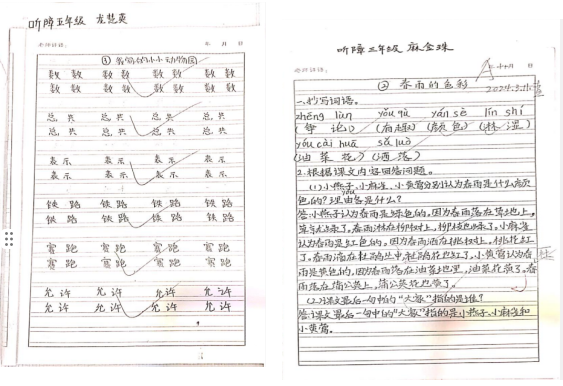 听障五年级 龙慧爽
老师评语: 年 月 日
数数 数数 数数 数数
数数 数数 数数 数数
总共 总共 总共 总共
总共 总共 总共 总共
表示 表示 表示 表示
表示 表示 表示 表示
铁路 铁路 铁路 铁路
铁路 铁路 铁路 铁路
赛跑 赛跑 赛跑 赛跑
赛跑 赛跑 赛跑 赛跑
允许 允许 允许 允许
允许 允许 允许 允许
听障三年级 麻金珠
老师评语:
② 春雨的色彩
一、抄写词语。
zhēng lùn yǒu qù yán sè lín shí
(争论) (有趣) (颜色) (淋湿)
yóu cài huā sǎ luò
(油菜花) (洒落)
2.根据课文内容回答问题。
(1)小燕子、小麻雀、小黄莺分别认为春雨是什么颜
色的?理由各是什么?
答:小燕子认为春雨是绿色的。因为春雨落在草地上,
草就绿了。春雨淋在柳树上,柳枝也绿了。小麻雀
认为春雨是红色的。因为春雨洒在桃树上,桃花红
了。春雨滴在杜鹃丛中,杜鹃花也红了。小黄莺认为春
雨是黄色的,因为春雨落在油菜地里,油菜花黄了。春
雨落在蒲公英上,蒲公英花也黄了。
(2)课文最后一句中的“大家”指的是谁?
答:课文最后一句中的“大家”指的是小燕子、小麻雀和
小黄莺。